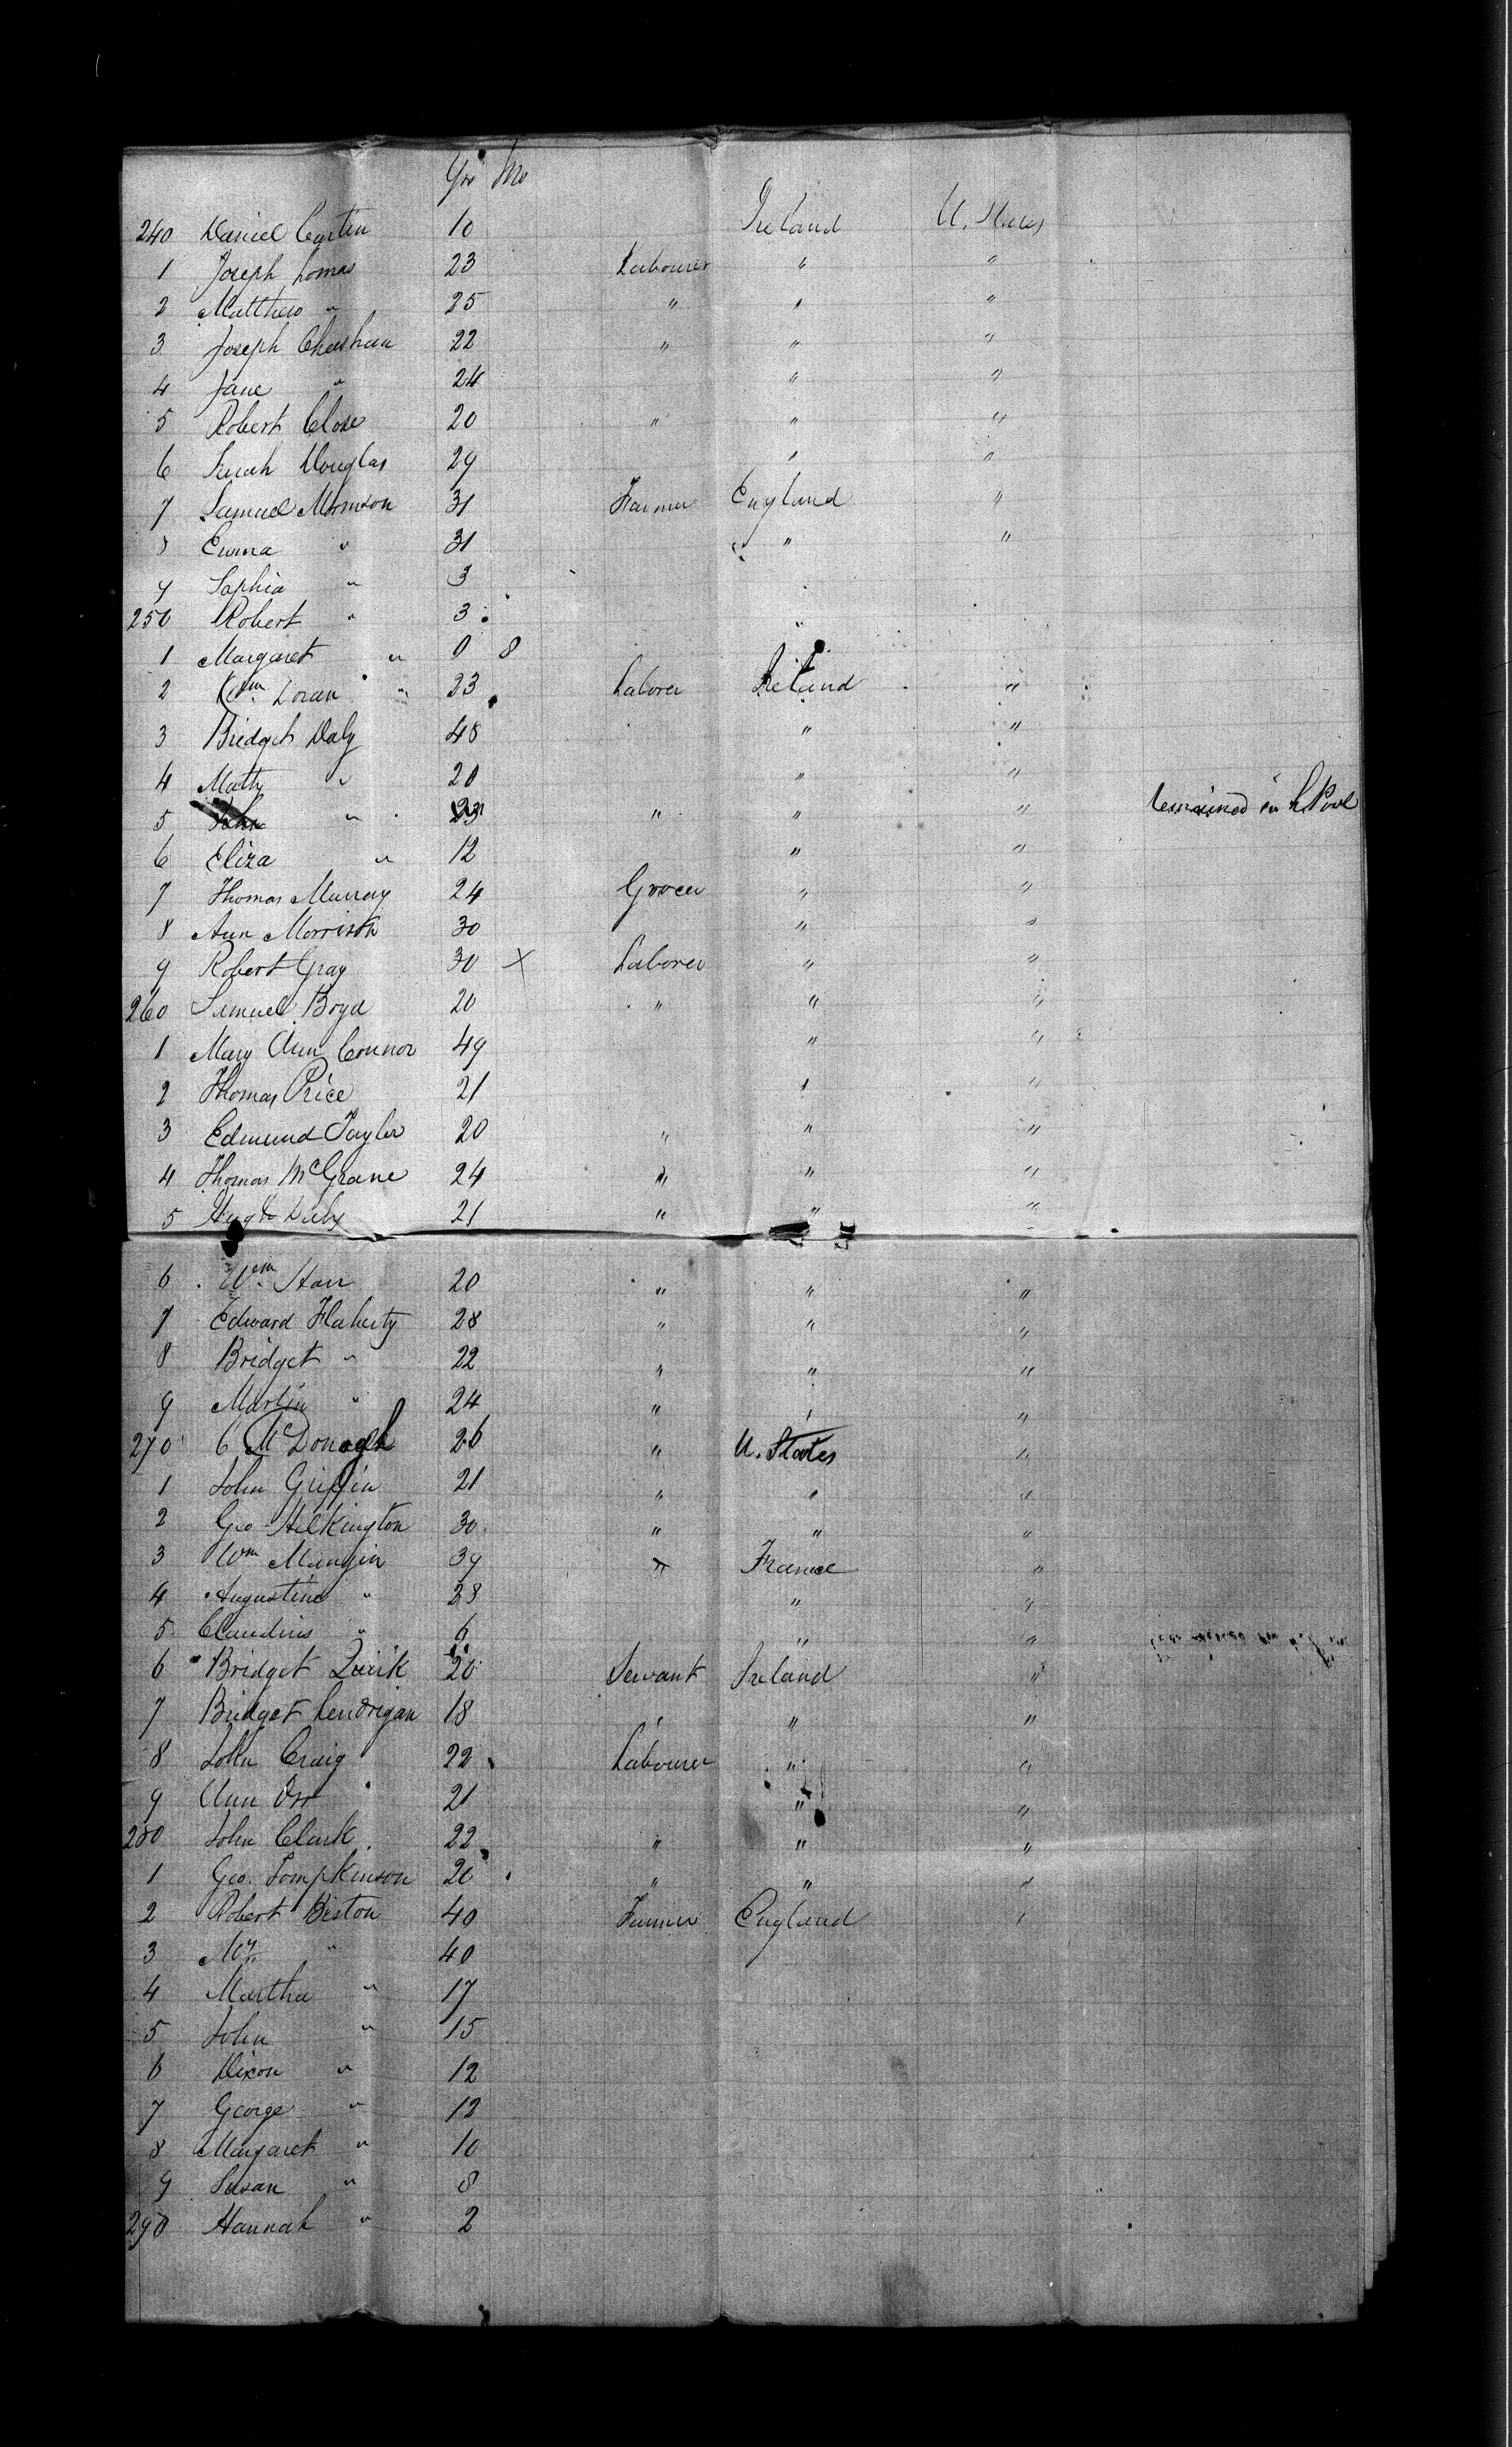 Yrs Mo
240 Daniel Carten 10 Ireland U. States
1 Joseph Lomas 23 Labourer " "
2 Matthew " 25 " " "
3 Joseph Cheshan 22 " " "
4 Jane " 24 " "
5 Robert Close 20 " " "
6 Sarah Douglas 29 " "
7 Samuel Morrison 31 Farmer England "
8 Emma " 31 " "
9 Sophia " 3
250 Robert " 3 "
1 Margaret " 0 8
2 Wm Doran " 23 Laborer Ireland "
3 Bridget Daly 48 " "
4 Matty " 20 " "
5 John " 23 " " " remained in LPool
6 Eliza " 12 " "
7 Thomas Murray 24 Grocer " "
8 Ann Morrison 30 " "
9 Robert Gray 30 X Laborer " "
260 Samuel Boyd 20 " " "
1 Mary Ann Connor 49 " "
2 Thomas Price 21 " "
3 Edmund Taylor 20 " " "
4 Thomas McGrane 24 " " "
5 Hugh Daly 21 " " "
6 Wm Starr 20 " " "
7 Edward Flaherty 28 " " "
8 Bridget " 22 " " "
9 Martin " 24 " " "
270 C McDonagh 26 " U. States "
1 John Griffin 21 " " "
2 Geo Hilkington 30 " " "
3 Wm Mangin 39 " France "
4 Augustine " 28 " "
5 Claudius " 6 " "
6 Bridget Quirk 20 Servant Ireland "
7 Bridget Lendrigan 18 " " "
8 John Craig 22 Labourer " "
9 Ann Orr 21 " "
280 John Clark 22 " " "
1 Geo. Tompkinson 20 " " "
2 Robert Biston 40 Farmer England "
3 My " 40
4 Martha " 17
5 John " 15
6 Dixon " 12
7 George " 12
8 Margaret " 10
9 Susan " 8
290 Hannah " 2